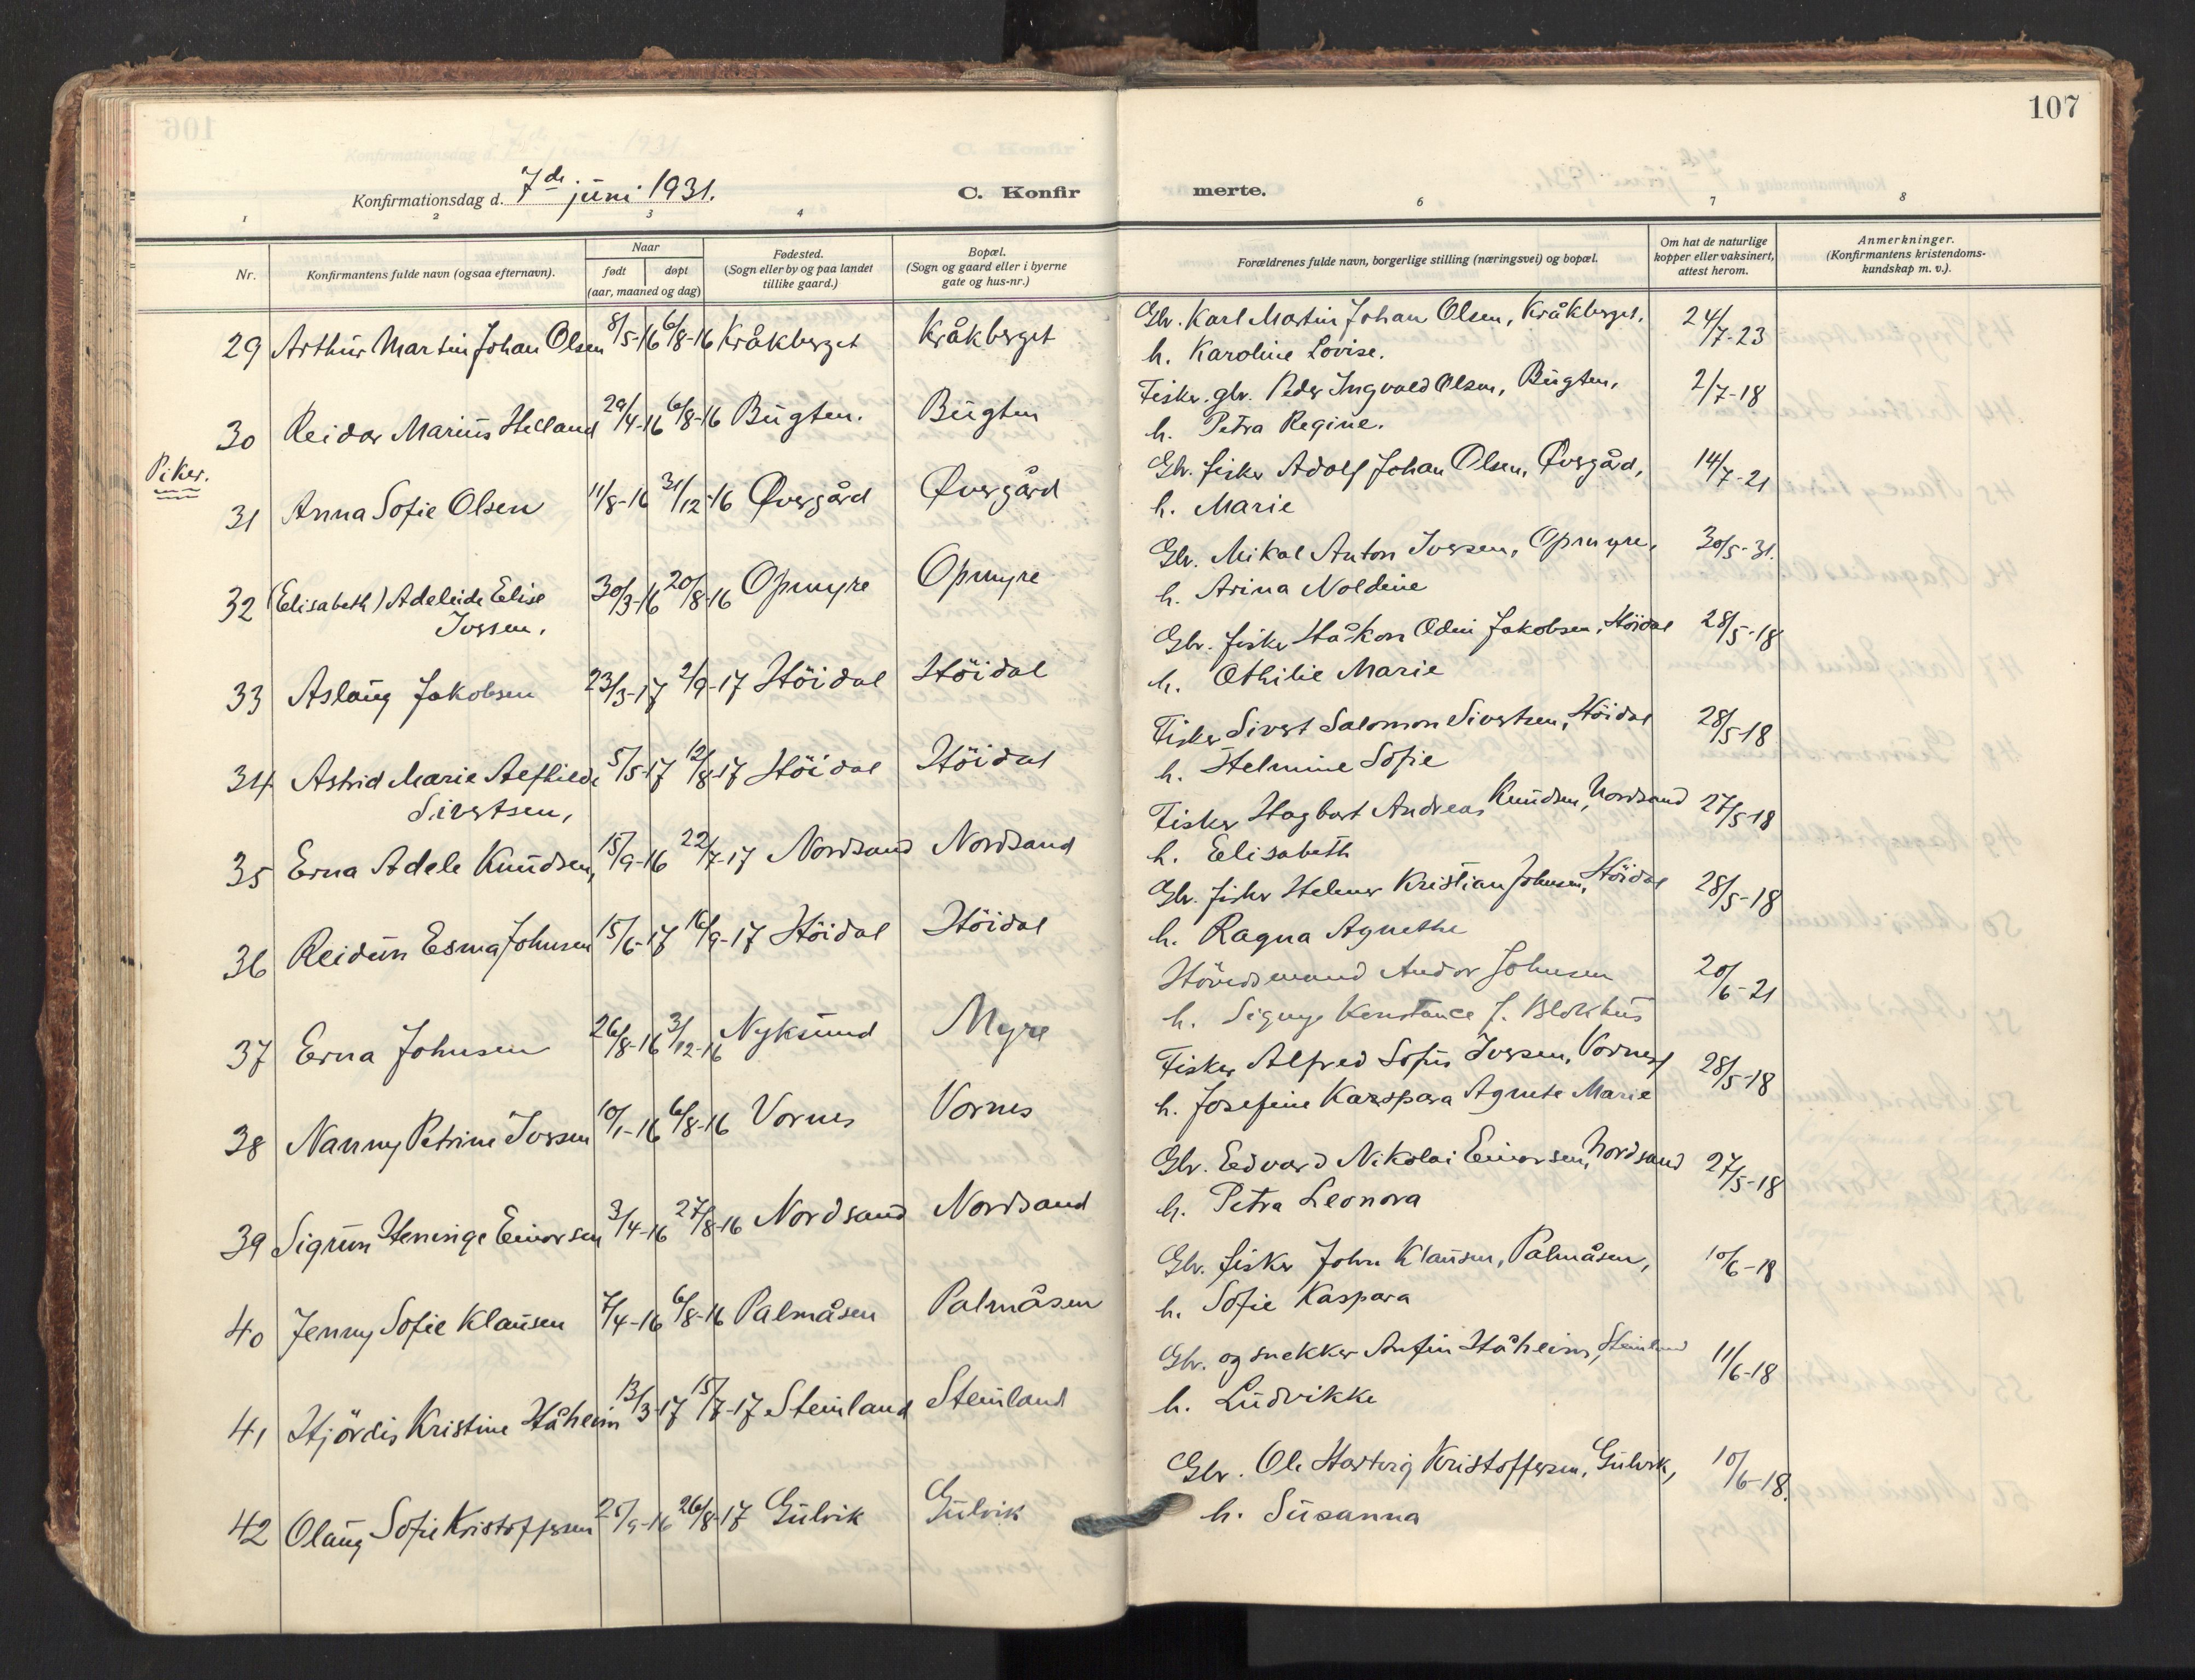 107
Konfirmationsdag d. 7de juni 1931.
C. Konfir
merte.
1 2 3 4 6 7 8
Nr.
Konfirmantens fulde navn (ogsaa efternavn).
Naar
født døpt
(aar, maaned og dag)
Fødested.
(Sogn eller by og paa landet
tillike gaard.)
Bopæl.
(Sogn og gaard eller i byerne
gate og hus-nr.)
Forældrenes fulde navn, borgerlige stilling (næringsvei) og bopæl.
Om hat de naturlige
kopper eller vaksinert,
attest herom.
Anmerkninger.
(Konfirmantens kristendoms-
kundskap m. v.).
29 Arthur Martin Johan Olsen 8/5-16 6/8-16 Kråkberget Kråkberget
Gbr. Karl Martin Johan Olsen, Kråkberget. 24/7-23
h. Karoline Lovise.
30 Reidar Marius Helland 29/4-16 6/8-16 Bugten. Bugten
Fisker. gbr. Peder Ingvald Olsen, Bugten, 2/7-18
h. Petra Regine.
Piker.
31 Anna Sofie Olsen 11/8-16 31/12-16 Øvergård Øvergård
Gbr. fisker Adolf Johan Olsen, Øvergård, 14/7-21
h. Marie
32 (Elisabeth) Adeleide Elise 30/3-16 20/8-16 Opmyre Opmyre
Iversen.
Gbr. Mikal Anton Iversen, Opmyre, 30/5-31.
h. Arina Noldine
33 Aslaug Jakobsen 23/3-17 2/9-17 Höidal Höidal
Gbr. fisker Håkon Odin Jakobsen, Höidal 28/5-18
h. Othilie Marie
34 Astrid Marie Alfhilde 5/5-17 12/8-17 Höidal Höidal
Sivertsen,
Fisker Sivert Salomon Sivertsen, Höidal 28/5-18
h. Helmine Sofie
35 Erna Adele Knudsen, 15/9-16 22/7-17 Nordsand Nordsand
Fisker Hagbart Andreas Knudsen, Nordsand 27/5-18
h. Elisabeth
36 Reidun Esma Johnsen 15/6-17 16/9-17 Höidal Höidal
Gbr. fisker Helmer Kristian Johnsen, Höidal 28/5-18
h. Ragna Agnethe
37 Erna Johnsen 26/8-16 3/12-16 Nyksund Myre
Hövedsmand Andor Johnsen 20/6-21
h. Signye Konstance J. Blokhus
38 Nanny Petrine Iversen 10/1-16 6/8-16 Vornes Vornes
Fisker Alfred Sofus Iversen, Vornes 28/5-18
h. Josefine Karspara Agnete Marie
39 Sigrun Heninge Einarsen 3/4-16 27/8-16 Nordsand Nordsand
Gbr. Edvard Nikolai Einarsen, Nordsand 27/5-18
h. Petra Leonora
40 Jenny Sofie Klausen 7/4-16 6/8-16 Palmåsen Palmåsen
Gbr. fisker John Klausen, Palmåsen, 10/6-18
h. Sofie Kaspara
41 Hjördis Kristine Håheim 13/3-17 15/7-17 Steinland Steinland
Gbr. og snekker Anfin Håheim, Steinland 11/6-18
h. Ludvikke
42 Olaug Sofie Kristoffersen 25/9-16 26/8-17 Gulvik Gulvik
Gbr. Ole Hartvig Kristoffersen, Gulvik, 10/6-18.
h. Susanna